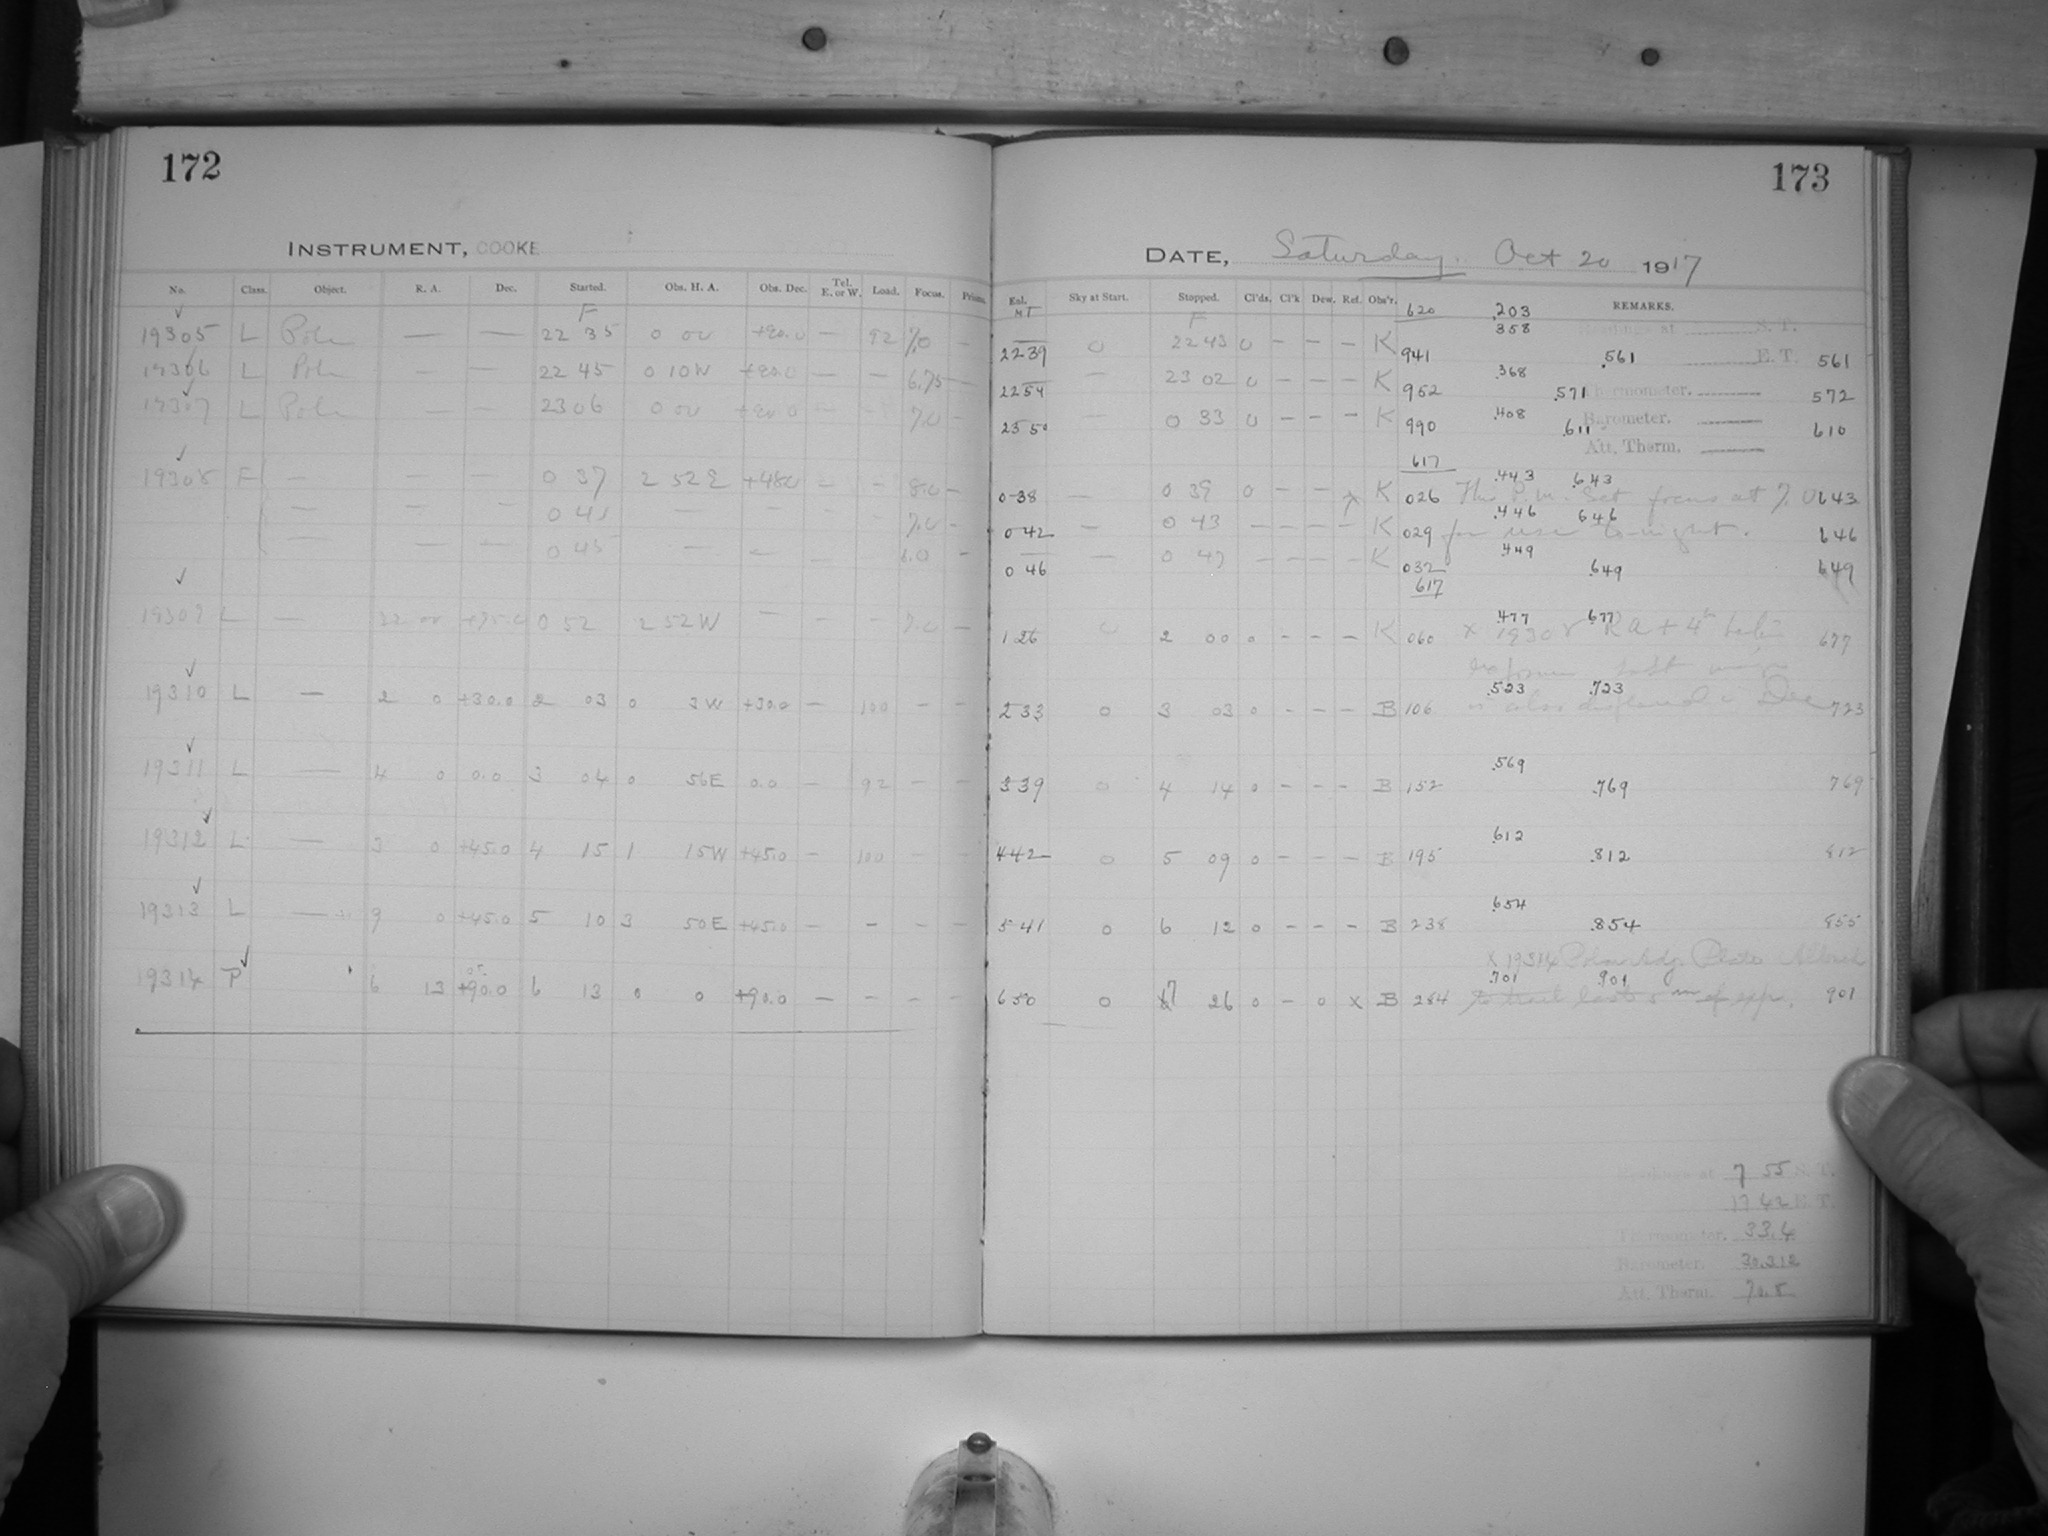 172
INSTRUMENT, COOKE
No. Class. Object. R. A. Dec. Started. Obs. H. A. Obs. Dec. Tel. E. or W. Load. Focus. Prisms.
F
19305 L Pole — — 22 35 0 00 +90.0 — 92 7.0 —
19306 L Pole — — 22 45 0 10W +90.0 — — 6.75 —
19307 L Pole — — 23 06 0 00 +90.0 — — 7.0 —
19308 F — — — 0 37 2 52E +48.0 — — 8.0 —
— — — 0 41 — — — — 7.0 —
— — — 0 45 — — — 6.0 —
19309 L — 22 00 0 52 2 52W — — — 7.0 —
19310 L — 2 0 +30.0 2 03 0 3W +30.0 — 100 — —
19311 L — 4 0 0.0 3 04 0 56E 0.0 — 92 — —
19312 L — 3 0 +45.0 4 15 1 15W +45.0 — 100 — —
19313 L — 9 0 +45.0 5 10 3 50E +45.0 — — — —
19314 P 6 13 +90.0 6 13 0 0 +90.0 — — — —
173
DATE, Saturday. Oct 20 1917
Sky at Start. Stopped. Cl'ds. Cl'k Dew. Ref. Obs'r. 620 .203 REMARKS.
F .358 Readings at S. T.
2239 0 22 43 0 — — — K 941 .561 E. T. 561
.368
2254 — 23 02 0 — — — K 952 .571 Thermometer. 572
.408 Barometer.
2350 — 0 33 0 — — — K 990 .611 610
Att. Therm.
617 .443 .643
0 38 — 0 39 0 — — K 026 This P.M. Set focus at 7.0 643
.446 646
0 42 — 0 43 — — — — K 029 for use to-night. 646
.449
0 46 — 0 47 — — — — K 032 .649 649
617
.477 .677
1 26 0 2 00 0 — — — K 060 x 19308 RA + 4 677
.523 .723
2 33 0 3 03 0 — — — B 106 is also displaced in Dec 723
.569
3 39 0 4 14 0 — — — B 152 .769 769
.612
4 42 0 5 09 0 — — — B 195 .812 812
.654
5 41 0 6 12 0 — — — B 238 .854 855
x 19314 Polar Adj. Plate Allowed
.701 .901
6 50 0 7 26 0 — 0 x B 284 to trail last 5 m of expo. 901
Readings at 7 55 S. T.
17 42 E. T.
Thermometer. 33.4
Barometer. 30.312
Att. Therm. 70.8